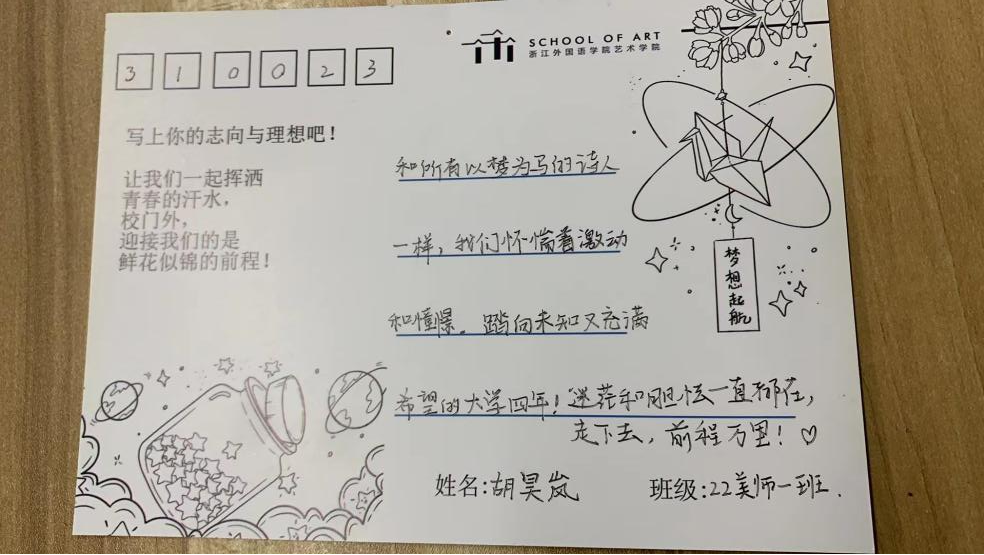 SCHOOL OF ART
浙江外国语学院艺术学院
310023
写上你的志向与理想吧！
让我们一起挥洒
青春的汗水，
校门外，
迎接我们的是
鲜花似锦的前程！
和所有以梦为马的诗人
一样，我们怀惴着激动
和憧憬。踏向未知又充满
希望的大学四年！迷茫和胆怯一直都在，
走下去，前程万里！♡
梦想起航
姓名：胡昊岚
班级：22美师一班.